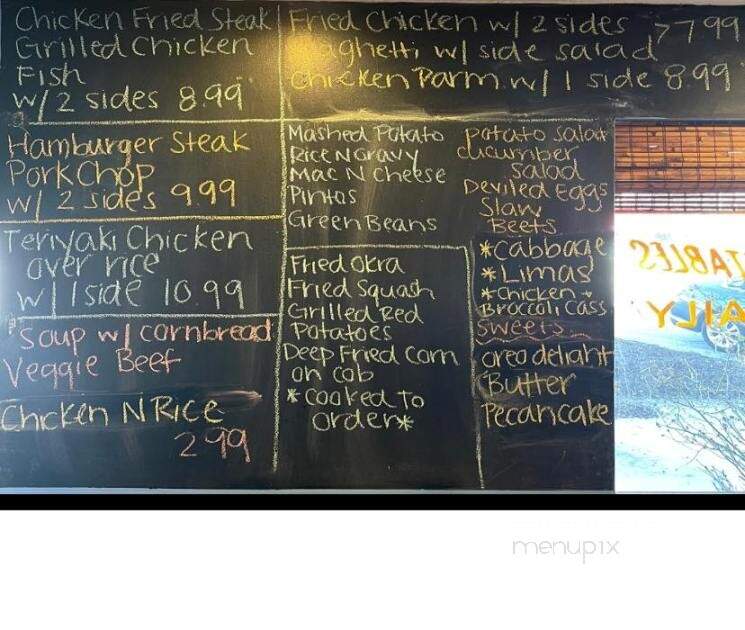 Chicken Fried Steak
Grilled Chicken
Fish
w/ 2 sides 8.99
Fried Chicken w/ 2 sides >7.99
Spaghetti w/ side salad
Chicken Parm w/ 1 side 8.99
Hamburger Steak
Pork Chop
w/ 2 sides 9.99
Teriyaki Chicken
over rice
w/ 1 side 10.99
Soup w/ cornbread
Veggie Beef
Chicken N Rice
2.99
Mashed Potato
Rice N Gravy
Mac N Cheese
Pintos
Green Beans
Fried Okra
Fried Squash
Grilled Red
Potatoes
Deep Fried Corn
on cob
*cooked to
order*
potato salad
cucumber
salad
Deviled eggs
Slaw
Beets
*Cabbage
*Limas
*Chicken +
Broccoli Cass
Sweets
oreo delight
Butter
Pecancake
TABLES
AILY
menupix